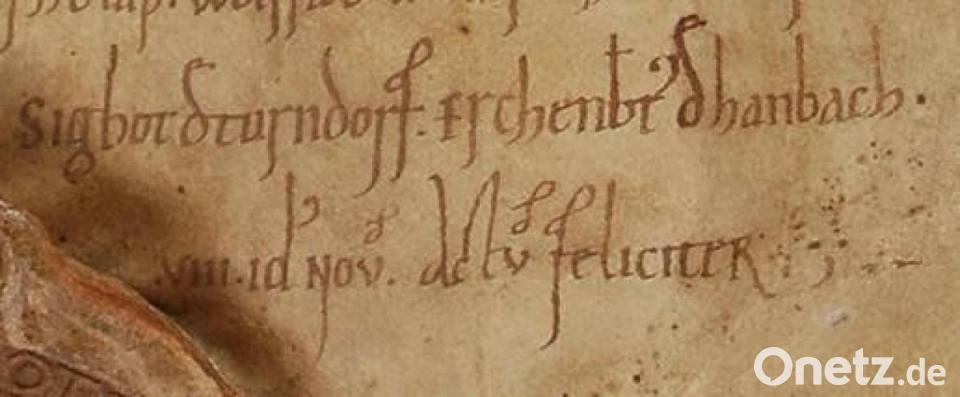 Sigbot d tursndorf. Erchenbt d hanbach.
.VIII. id Nov. Actu feliciter
Onetz.de